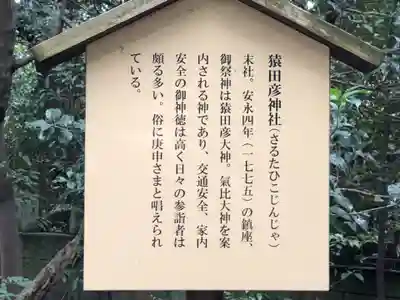 猿田彦神社(さるたひこじんじゃ)
末社。安永四年(一七七五)の鎮座、
御祭神は猿田彦大神。氣比大神を案
内される神であり、交通安全、家内
安全の御神徳は高く日々の参詣者は
頗る多い。俗に庚申さまと唱えられ
ている。